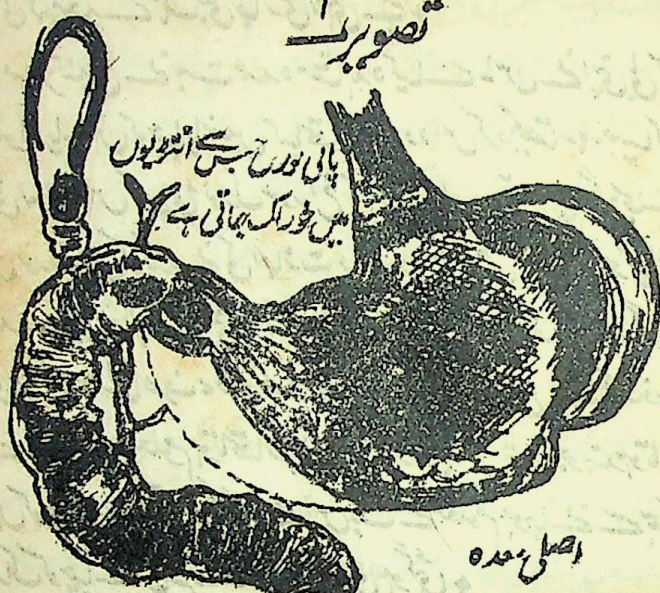 تصویر ۱
پائی لورس جس سے انتڑیوں
میں خوراک جاتی ہے
اصلی معدہ